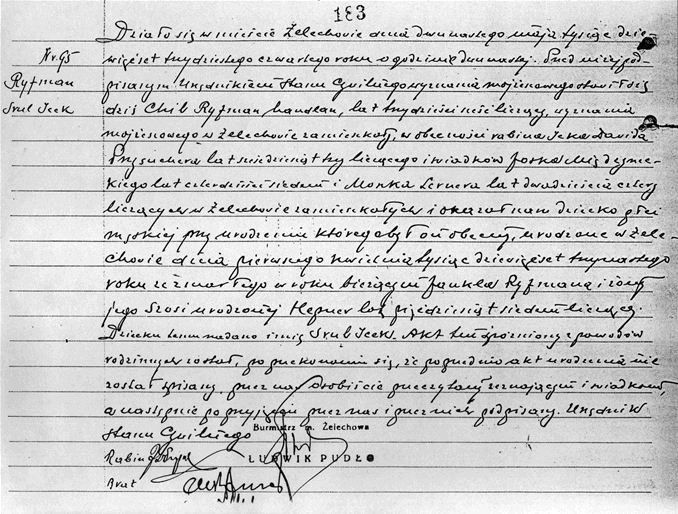 183
Działo się w mieście Żelechowie dnia dwunastego maja tysiąc dzie-
więćset trzydziestego czwartego roku o godzinie dwunastej. Przed niżej pod-
Nr. 95
pisanym Urzędnikiem Stanu Cywilnego wyznania mojżeszowego stawił się
Ryfman
dziś Chil Ryfman handlarz, lat trzydzieści sześć liczący, wyznania
Srul Icek
mojżeszowego w Żelechowie zamieszkały, w obecności rabina Icka Dawida
Przysuchera lat siedemdziesiąt trzy liczącego i świadków Joska
lat czterdzieści siedem i Monka Lernera lat dwadzieścia cztery
liczących w Żelechowie zamieszkałych i okazał nam dziecko płci
męskiej przy urodzeniu którego był on obecny, urodzone w Żele-
chowie dnia pierwszego kwietnia tysiąc dziewięćset trzynastego
roku ze zmarłego w roku bieżącym Jankla Ryfmana i żony
jego Szosi urodzonej Hepner lat pięćdziesiąt siedem liczącej.
Dziecku temu nadano imię Srul Icek. Akt ten opóźniony z powodów
rodzinnych został, po przekonaniu się, że poprzednio akt urodzenia nie
został spisany, przez nas osobiście przeczytany zeznającym i świadkom,
a następnie po przyjęciu przez nas i przez nich podpisany. Urzędnik
Stanu Cywilnego
Burmistrz m. Żelechowa
Rabin
LUDWIK PUDŁO
Brat